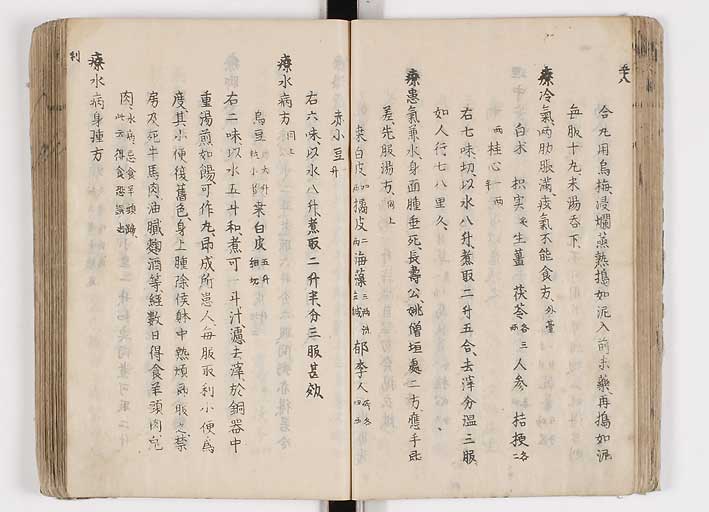 合丸用烏梅浸爛蒸熱搗如泥入前末藥再搗如泥
每服十九米湯吞下
療冷氣兩肋脹滿痰氣不能食方 外臺
白朮 枳実 炙 生薑 茯苓 各三兩 人參 桔梗 各二
兩 桂心 一兩半
右七味切以水八升煮取二升五合去滓分溫三服
如人行七八里久
療患氣兼水身面腫垂死長壽公姚僧垣處二方應手即
差先服湯方 同上
桒白皮 橘皮 二兩 海藻 三兩洗去鹹 郁李人
赤小豆 升
右六味以水八升煮取二升半分三服甚効
療水病方 同上
烏豆 桒白皮 五升細切
右二味以水五斗和煮可一斗汁濾去滓於銅器中
重湯煎如餳可作丸即成所患人每服取利小便為
度其小便復舊色身上腫除候躰中熱煩即服之禁
房及死牛馬肉油膩麴酒等經數日得食羊頭肉兔
肉 水病忌食羊頭蹄 此云得食恐誤出
療水病身腫方
利